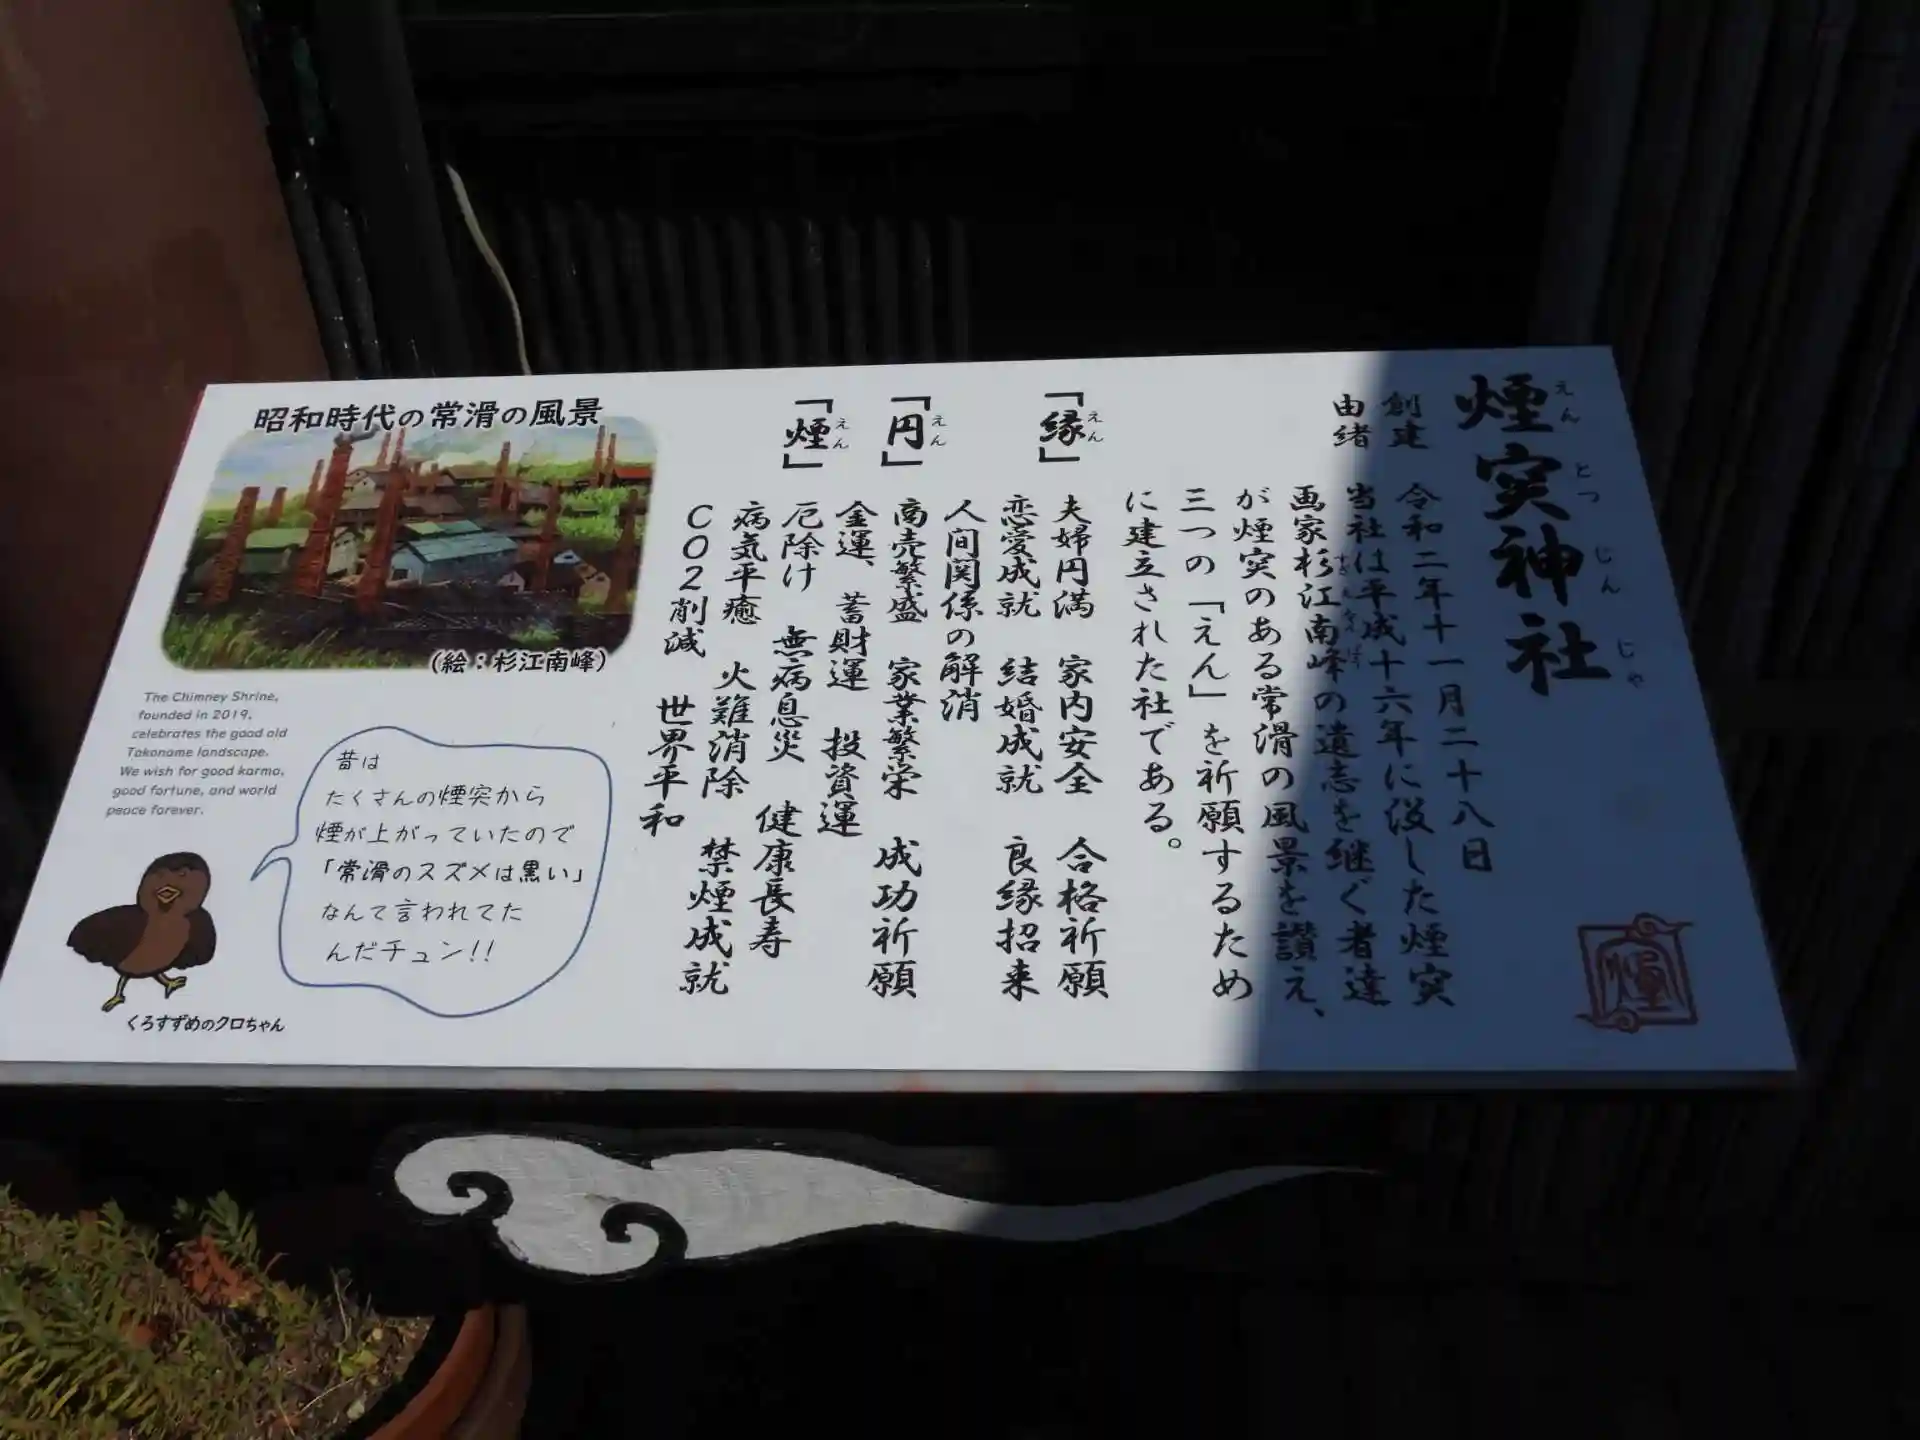 煙突神社
えん とつ じん じゃ
創建 令和二年十一月二十八日
由緒 当社は平成十六年に没した煙突
画家杉江南峰の遺志を継ぐ者達
が煙突のある常滑の風景を讃え、
三つの「えん」を祈願するため
に建立された社である。
「縁」 夫婦円満 家内安全 合格祈願
えん
恋愛成就 結婚成就 良縁招来
人間関係の解消
「円」 商売繁盛 家業繁栄 成功祈願
えん
金運、蓄財運 投資運
「煙」 厄除け 無病息災 健康長寿
えん
病気平癒 火難消除 禁煙成就
CO2削減 世界平和
煙
昭和時代の常滑の風景
(絵:杉江南峰)
The Chimney Shrine,
founded in 2019,
celebrates the good old
Tokoname landscape.
We wish for good karma,
good fortune, and world
peace forever.
昔は
たくさんの煙突から
煙が上がっていたので
「常滑のスズメは黒い」
なんて言われてた
んだチュン!!
くろすずめのクロちゃん